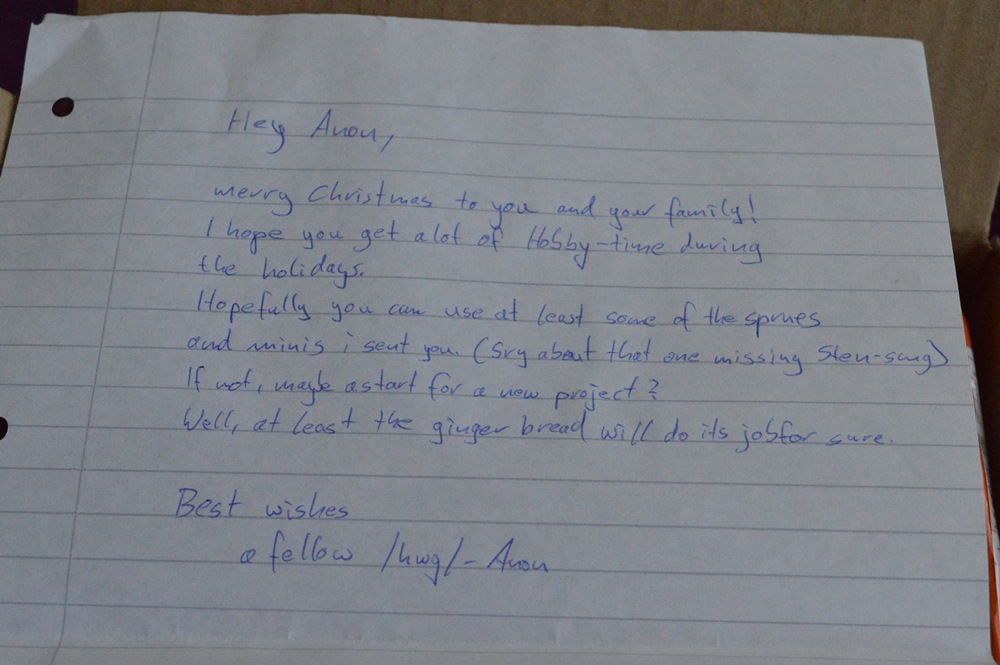 Hey Anon,
merry Christmas to you and your family!
I hope you get alot of Hobby-time during
the holidays.
Hopefully you can use at least some of the sprues
and minis i sent you. (Sry about that one missing Sten-smg)
If not, maybe a start for a new project?
Well, at least the ginger bread will do its job for sure.
Best wishes
a fellow /hwg/- Anon